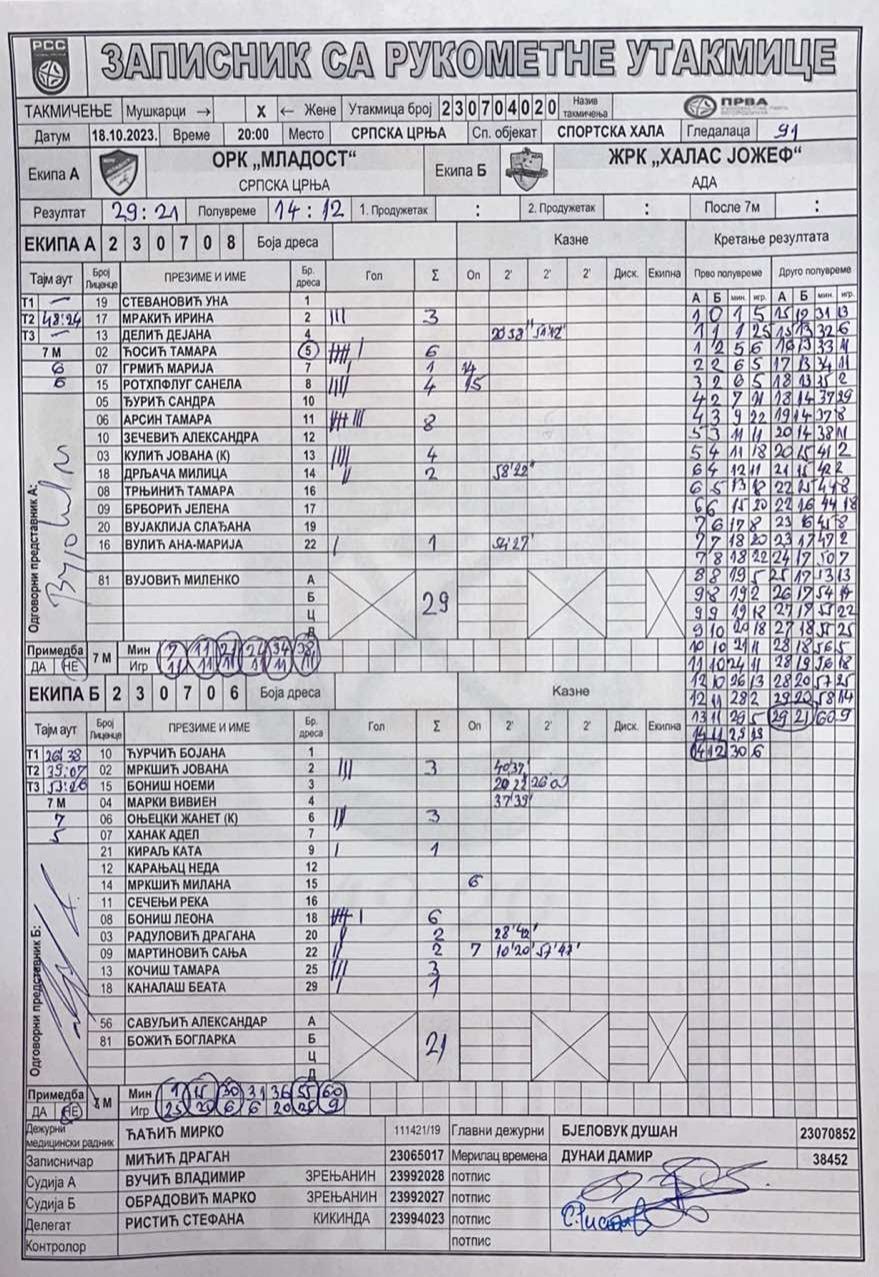 РСС
ЗАПИСНИК СА РУКОМЕТНЕ УТАКМИЦЕ
ТАКМИЧЕЊЕ Мушкарци → X ← Жене Утакмица број 2 3 0 7 0 4 0 2 0 Назив такмичења ПРВА
Датум 18.10.2023. Време 20:00 Место СРПСКА ЦРЊА Сп. објекат СПОРТСКА ХАЛА Гледалаца 91
Екипа А ОРК „МЛАДОСТ“ СРПСКА ЦРЊА Екипа Б ЖРК „ХАЛАС ЈОЖЕФ“ АДА
Резултат 29:21 Полувреме 14:12 1. Продужетак : 2. Продужетак : После 7м :
ЕКИПА А 2 3 0 7 0 8 Боја дреса Казне Кретање резултата
Тајм аут Број Лиценце ПРЕЗИМЕ И ИМЕ Бр. дреса Гол Σ Оп 2' 2' 2' Диск. Екипна Прво полувреме Друго полувреме
А Б мин. игр. А Б мин. игр.
Т1 – 19 СТЕВАНОВИЋ УНА 1
Т2 48:24 17 МРАКИЋ ИРИНА 2 III 3
Т3 – 13 ДЕЛИЋ ДЕЈАНА 4
7 М 02 ЋОСИЋ ТАМАРА 5 6
6 07 ГРМИЋ МАРИЈА 7 I 1 14
6 15 РОТХПФЛУГ САНЕЛА 8 IIII 4 15
05 ЂУРИЋ САНДРА 10
06 АРСИН ТАМАРА 11 8
10 ЗЕЧЕВИЋ АЛЕКСАНДРА 12
03 КУЛИЋ ЈОВАНА (К) 13 IIII 4
18 ДРЉАЧА МИЛИЦА 14 II 2 58'22"
08 ТРЊИНИЋ ТАМАРА 16
09 БРБОРИЋ ЈЕЛЕНА 17
20 ВУЈАКЛИЈА СЛАЂАНА 19
16 ВУЛИЋ АНА-МАРИЈА 22 I 1 54'27"
81 ВУЈОВИЋ МИЛЕНКО А
Б 29
Ц
Д
Одговорни представник А:
Примедба ДА НЕ 7 М Мин 7 11 21 24 34 38
Игр 11 11 11 11 11 11
1 0 1 5 15 12 31 13
1 1 1 25 15 13 32 6
1 2 5 6 16 13 33 11
2 2 6 5 17 13 34 11
3 2 6 5 18 13 35 2
4 2 7 11 18 14 37 29
4 3 9 22 19 14 37 8
5 3 11 11 20 14 38 11
5 4 11 18 20 15 41 2
6 4 12 11 21 15 42 2
6 5 13 18 22 15 44 8
6 6 15 20 22 16 44 18
7 6 17 8 23 16 45 8
7 7 18 20 23 17 47 2
7 8 18 22 24 17 50 7
8 8 19 5 25 17 53 13
9 8 19 2 26 17 54 14
9 9 19 18 27 17 55 22
9 10 20 18 27 18 55 25
10 10 21 11 28 18 56 5
11 10 24 11 28 19 56 18
12 10 26 13 28 20 57 25
12 11 28 2 29 20 58 14
13 11 29 5 29 21 60 9
14 11 29 13
14 12 30 6
ЕКИПА Б 2 3 0 7 0 6 Боја дреса Казне
Тајм аут Број Лиценце ПРЕЗИМЕ И ИМЕ Бр. дреса Гол Σ Оп 2' 2' 2' Диск. Екипна
Т1 26:38 10 ЂУРЧИЋ БОЈАНА 1
Т2 39:07 02 МРКШИЋ ЈОВАНА 2 III 3 40'37"
Т3 53:26 15 БОНИШ НОЕМИ 3
7 М 04 МАРКИ ВИВИЕН 4 37'39"
7 06 ОЊЕЦКИ ЖАНЕТ (К) 6 III 3
5 07 ХАНАК АДЕЛ 7
21 КИРАЉ КАТА 9 I 1
12 КАРАЊАЦ НЕДА 12
14 МРКШИЋ МИЛАНА 15 6
11 СЕЧЕЊИ РЕКА 16
08 БОНИШ ЛЕОНА 18 6
03 РАДУЛОВИЋ ДРАГАНА 20 II 2 28'42"
09 МАРТИНОВИЋ САЊА 22 II 2 7 10'20" 57'47"
13 КОЧИШ ТАМАРА 25 III 3
18 КАНАЛАШ БЕАТА 29 I 1
56 САВУЉИЋ АЛЕКСАНДАР А
81 БОЖИЋ БОГЛАРКА Б 21
Ц
Д
Одговорни представник Б:
Примедба ДА НЕ 7 М Мин 1 15 30 31 36 55 60
Игр 25 20 6 6 20 25 9
Дежурни медицински радник ЋАЋИЋ МИРКО 111421/19 Главни дежурни БЈЕЛОВУК ДУШАН 23070852
Записничар МИЋИЋ ДРАГАН 23065017 Мерилац времена ДУНАИ ДАМИР 38452
Судија А ВУЧИЋ ВЛАДИМИР ЗРЕЊАНИН 23992028 потпис
Судија Б ОБРАДОВИЋ МАРКО ЗРЕЊАНИН 23992027 потпис
Делегат РИСТИЋ СТЕФАНА КИКИНДА 23994023 потпис
Контролор потпис